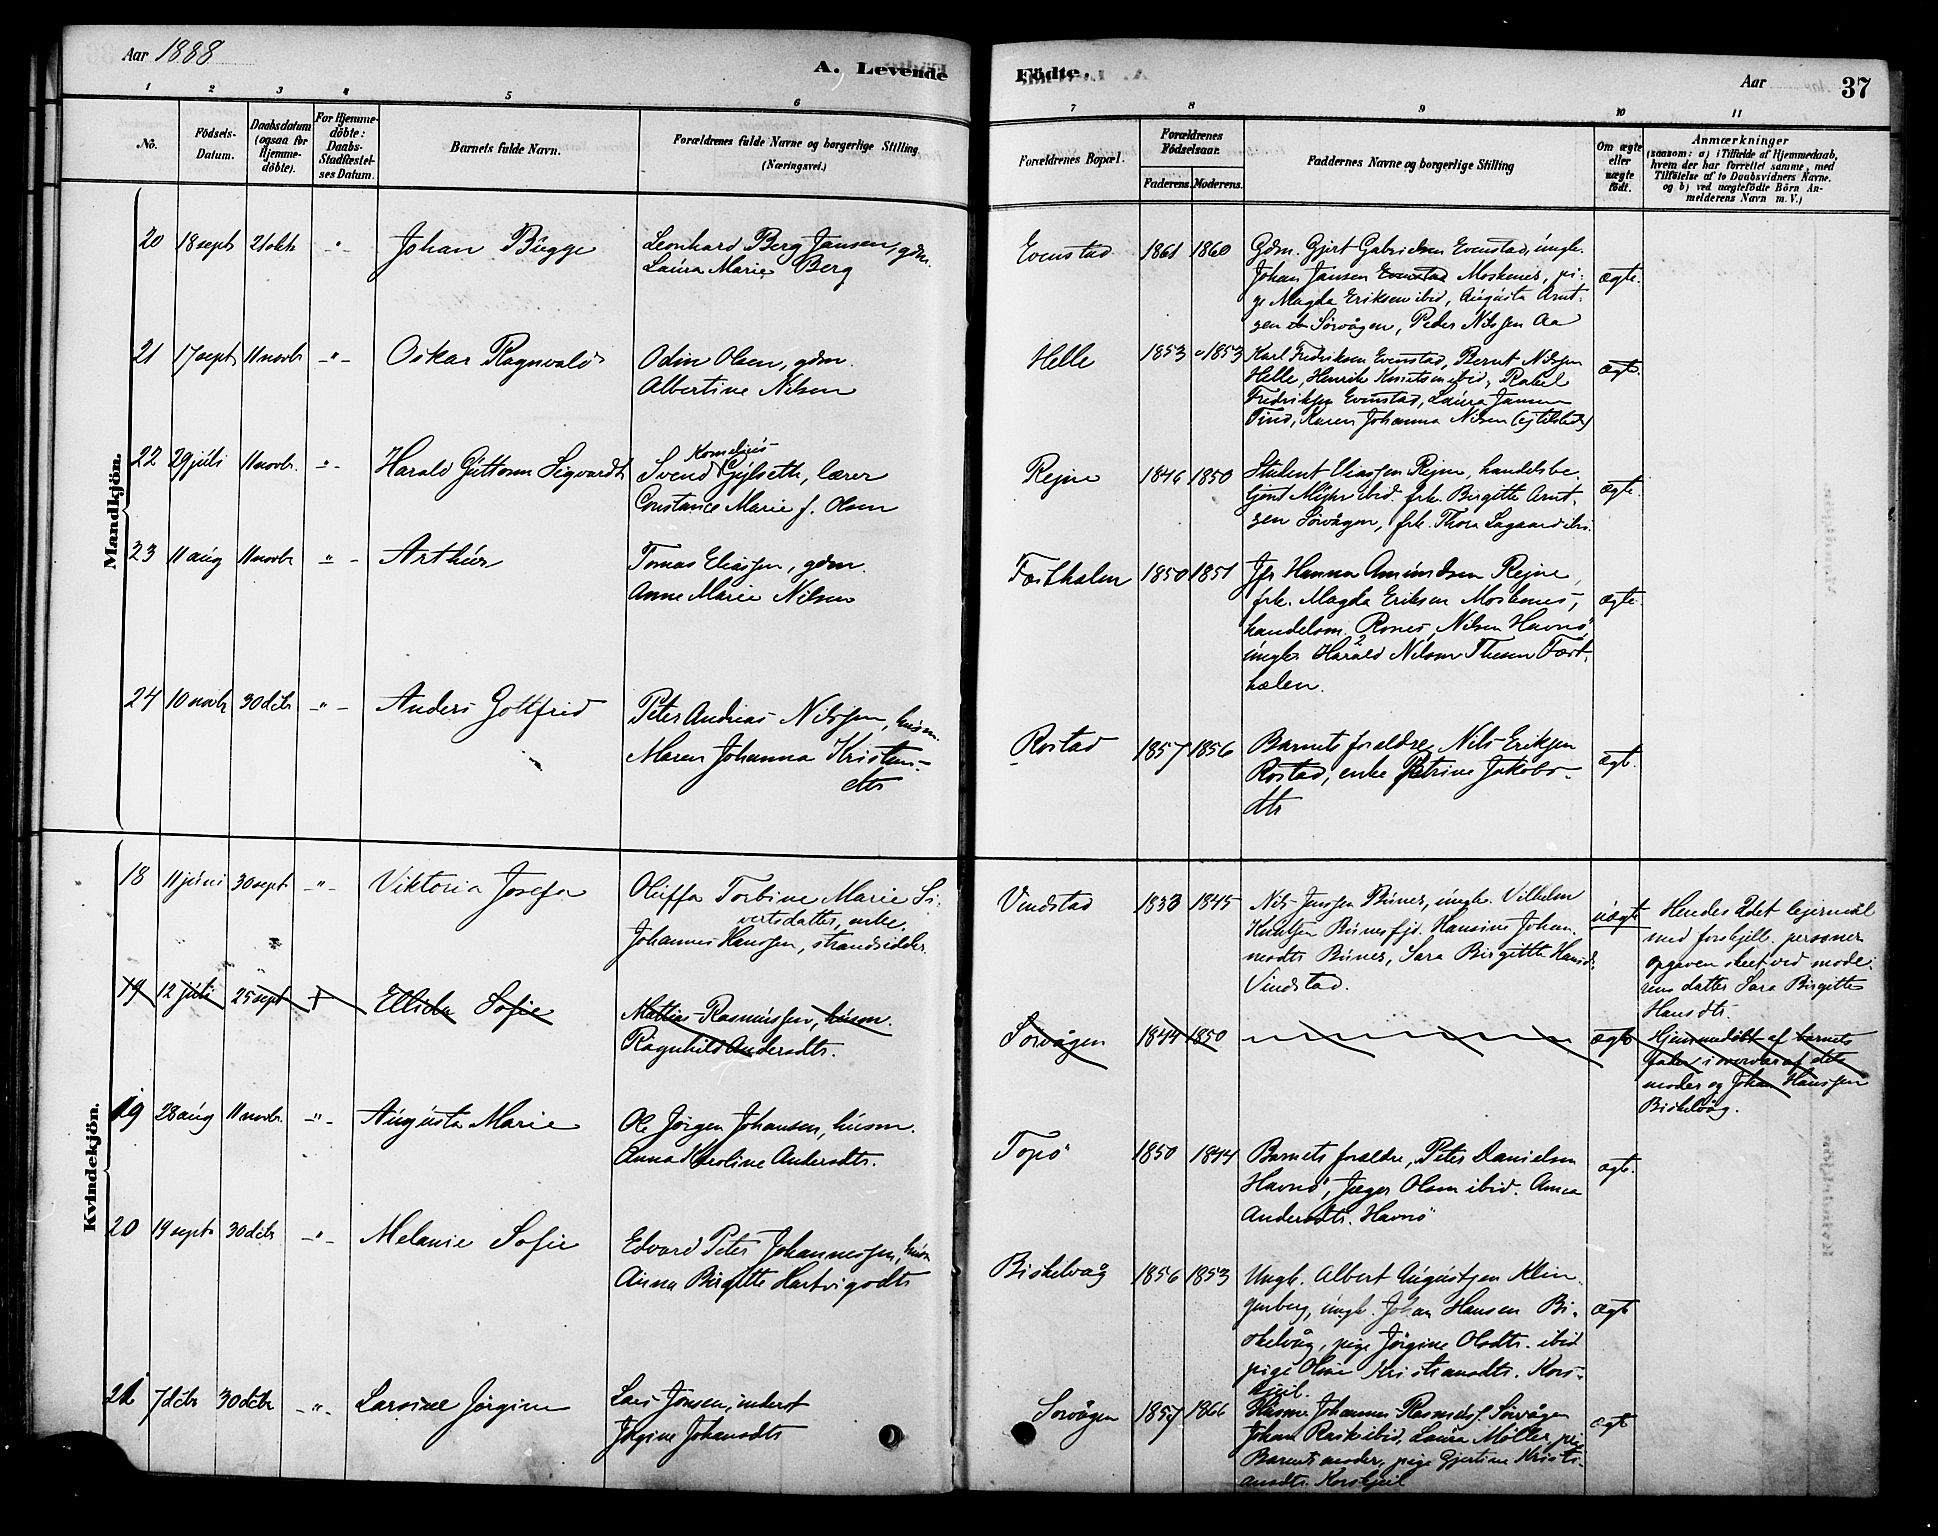 Aar 1888
A. Levende
Födte.
Aar
37
1 2 3 4 5 6 7 8 9 10 11
No.
Födsels-Datum.
Daabsdatum (ogsaa for Hjemme-döbte).
For Hjemme-döbte: Daabs-Stadfæstel-ses Datum.
Barnets fulde Navn.
Forældrenes fulde Navne og borgerlige Stilling (Næringsvei.)
Forældrenes Bopæl.
Forældrenes Födselsaar.
Faderens. Moderens.
Faddernes Navne og borgerlige Stilling
Om ægte eller uægte født.
Anmærkninger
(saasom: a) i Tilfælde af Hjemmedaab, hvem der har forrettet samme, med Tilföielse af to Daabsvidners Navne. og b) ved uægtefödte Börn An-melderens Navn m. V.)
Mandkjön.
20 18 sept 21 okt -"- Johan Bugge
Leonhard Berg Jansen, gdm.
Laura Marie Berg
Evenstad 1861 1860
Gdm. Gjert Gabrielsen Evenstad, ungk.
Johan Jansen Evenstad Moskenes, pi-
ge Magda Eriksen ibid, Augusta Arnt-
zen Sörvågen, Peder Nilssen Aa
ægte.
21 17 sept 11 novbr -"- Oskar Ragnvald
Odin Olsen, gdm.
Albertine Nilsen
Helle 1853 1853
Karl Fredriksen Evenstad, Bernt Nilssen
Helle, Henrik Knutsen ibid, Rakel
Fredriksen Evenstad, Laura Jansen
Tind, Karen Johanna Nilsen (ej tilsted)
ægt.
22 29 juli 11 novbr. -"- Harald Guttorm Sigvardt
Svend Kornelius Gylseth, lærer
Constance Marie f. Olsen
Rejne 1846 1850
Student Eliassen Rejne, handelsbe-
tjent ibid. frk. Birgitte Arnt-
zen Sörvågen, frk. Thora Lagaard ibid.
ægte.
23 11 aug 11 novbr -"- Arthur
Tomas Eliassen, gdm.
Anne Marie Nilsen
1850 1851
Jfr Hanna Amundsen Rejne,
frk. Magda Eriksen Moskenes,
handelsm. Nilsen Havnö
ungk. Harald Nilsen Thesen Fæst-
hælen.
ægte.
24 10 novbr 30 dcbr -"- Anders Gottfrid
Peter Andreas Nilssen, husm.
Maren Johanna Kristens-
dtr
Rostad 1857 1856
Barnets foraldre, Nils Eriksen
Rostad, enke Petrine Jakobs-
dtr
ægt.
Kvindekjön.
18 11 juni 30 sept. -"- Viktoria Josefa
Oluffa Torbine Marie Si-
vertsdatter, enke.
Johannes Hanssen, strandsidder.
Vindstad 1833 1845
Nils Jenssen Bunes, ungk. Vilhelm
Knutsen Bunesfjd. Hansine Johan-
nesdtr Bunes, Sara Birgitte Hansd.
Vindstad.
uægt
Hendes 2det lejermål
med forskjell. personer
opgaven skeet ved mode-
rens datter Sara Birgitte
Hansdtr.
19 12 juli 25 sept Ellida Sofie
Mathias Rasmussen, husm.
Ragnhild Andersdtr.
Sörvågen 1844 1850
ægte
Hjemmedöbt af barnets
fader i overvær af dets
moder og Johan Hanssen
Biskelvåg.
19 28 aug 11 novbr. -"- Augusta Marie
Ole Jörgen Johansen, husm.
Anna Karoline Andersdtr.
Topö 1850 1844
Barnets foraldre, Peter Danielsen
Havnö, Jæger Olsen ibid. Anna
Andersdtr. Havnö
ægt.
20 14 sept 30 dcbr -"- Melanie Sofie
Edvard Peter Johannessen, husm
Anna Birgitte Hartvigsdtr
Biskelvåg 1856 1853
Ungk. Albert Augustsen Klin-
genberg, ungk. Johan Hansen Bi-
skelvåg, pige Jörgine Olsdtr. ibid
pige Oline Kristiansdtr. Kors-
kjeil.
ægt
21 7 dcbr 30 dcbr -"- Larsine Jörgine
Lars Jonsen, inderst
Jörgine Johansdtr
Sörvågen 1857 1866
Husm. Johannes Rasmuss. Sörvågen
Johan ibid, Laura Möller, pige
Barnets moder, pige Gjertine Kristi-
ansdtr. Korskjeil
ægt